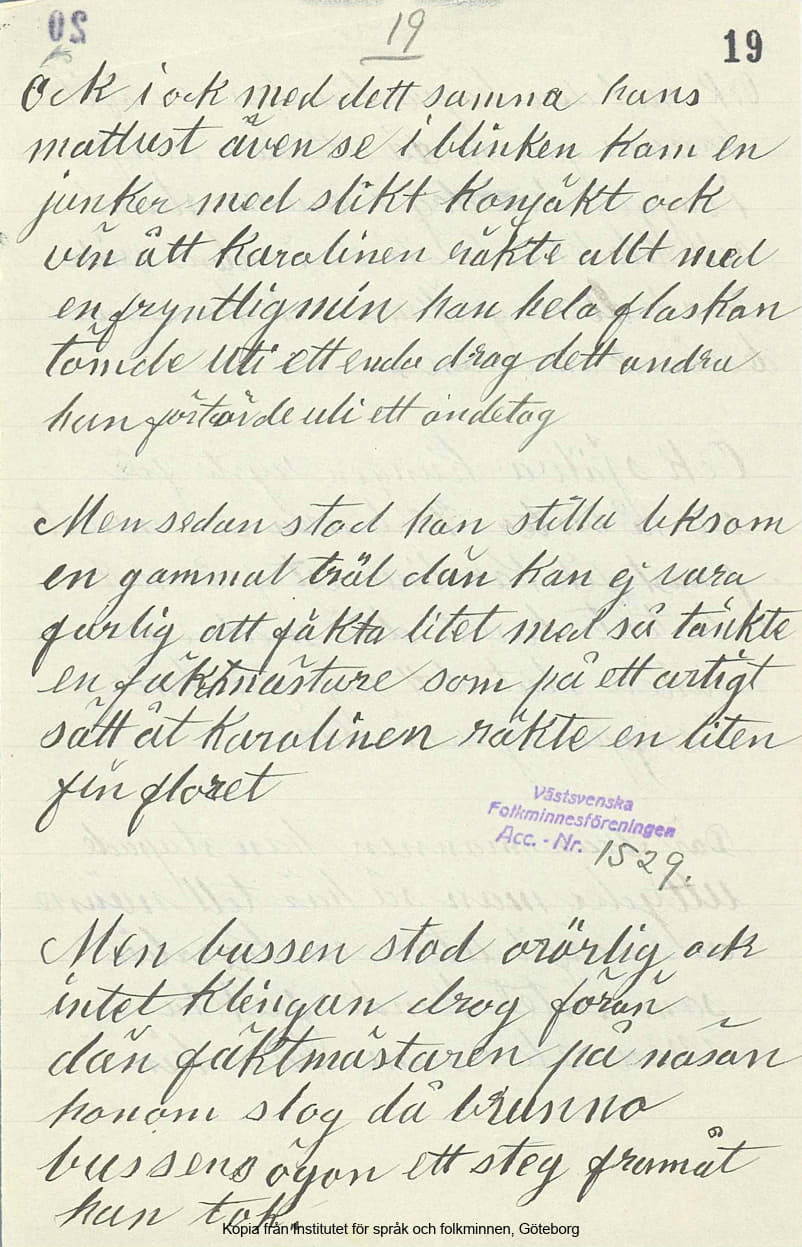 20
19
19
Ock i ock med dett samma hans
mattust även se i blinken kam en
junker med slikt konjäkt ock
vin ått Karolinen räkte allt med
en fryntlig min han hela flaskan
tömde uti ett enda drag dett andra
han förtärde uti ett andetag
Men sedan stod han stilla liksom
en gammal träl dän kan ej vara
farlig att fäkta litet med så tänkte
en fäktmästare som på ett artigt
sätt åt Karolinen räkte en liten
fin floret
Västsvenska
Folkminnesföreningen
Acc. - Nr. 1529.
Men bussen stod orörlig ock
intet klingan drog förän
dän fäktmästaren på näsan
honom slog då brunno
bussens ögon ett steg framåt
han tok.
Kopia från Institutet för språk och folkminnen, Göteborg